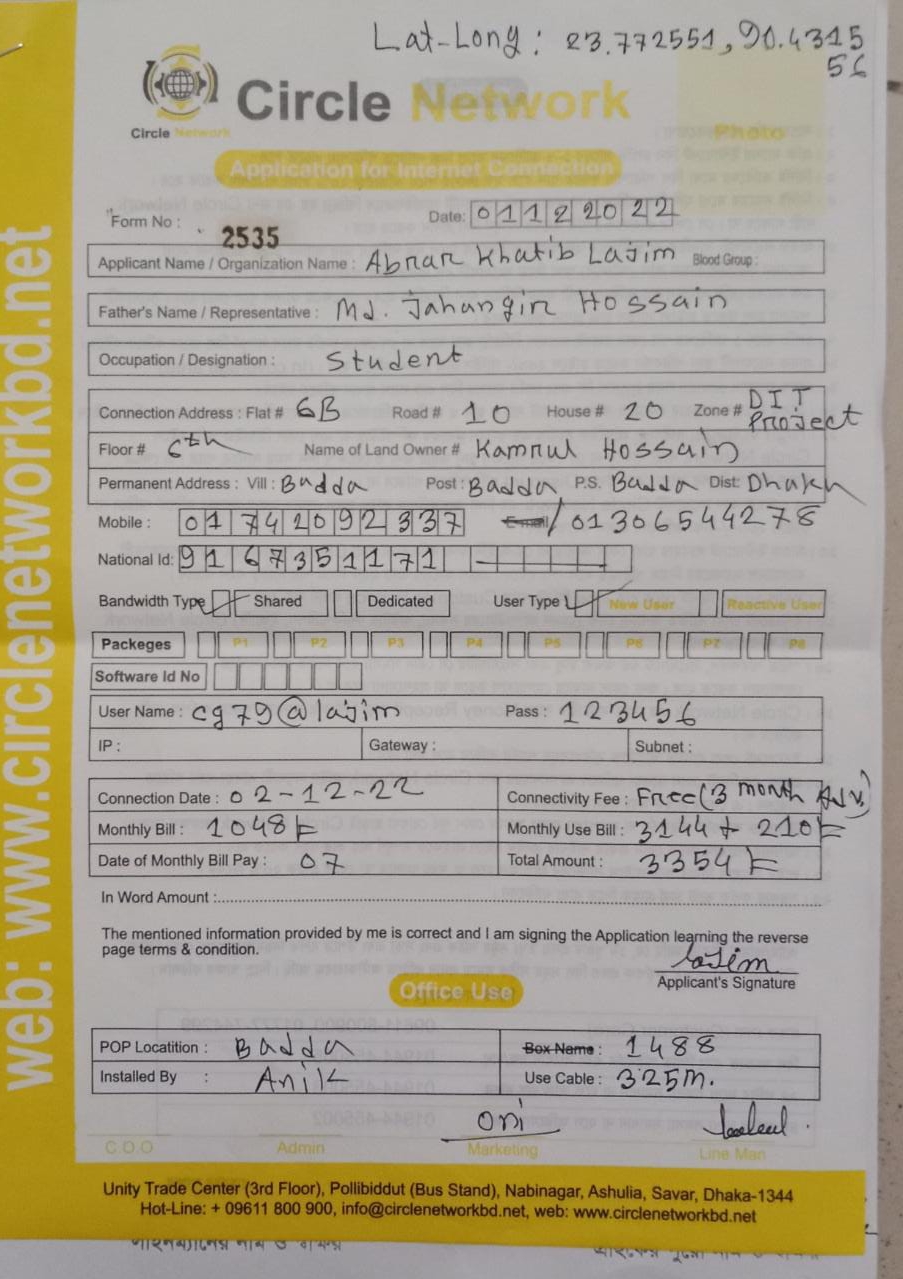 Lat-Long: 23.772551, 90.4315
56
Circle Network
Circle Network
Photo
Application for Internet Connection
Form No : 2535 Date: 01122022
Applicant Name / Organization Name : Abrar Khatib Lajim Blood Group :
Father's Name / Representative : Md. Jahangir Hossain
Occupation / Designation : Student
Connection Address : Flat # 6B Road # 10 House # 20 Zone # DIT Project
Floor # 6th Name of Land Owner # Kamrul Hossain
Permanent Address : Vill : Badda Post : Badda P.S. Badda Dist: Dhaka
Mobile : 01742092337 E-mail / 01306544278
National Id: 9167351171
Bandwidth Type Shared Dedicated User Type New User Reactive User
Packeges P1 P2 P3 P4 P5 P6 P7 P8
Software Id No
User Name : cg79@lajim Pass : 123456
IP : Gateway : Subnet :
Connection Date : 02-12-22 Connectivity Fee : Free (3 month Adv.)
Monthly Bill : 1048৳ Monthly Use Bill : 3144 + 210৳
Date of Monthly Bill Pay : 07 Total Amount : 3354৳
In Word Amount :
The mentioned information provided by me is correct and I am signing the Application learning the reverse
page terms & condition.
Lajim
Applicant's Signature
Office Use
POP Locatition : Badda Box Name : 1488
Installed By : Anik Use Cable : 325m.
Oni
C.O.O Admin Marketing Line Man
Unity Trade Center (3rd Floor), Pollibiddut (Bus Stand), Nabinagar, Ashulia, Savar, Dhaka-1344
Hot-Line: + 09611 800 900, info@circlenetworkbd.net, web: www.circlenetworkbd.net
web: www.circlenetworkbd.net